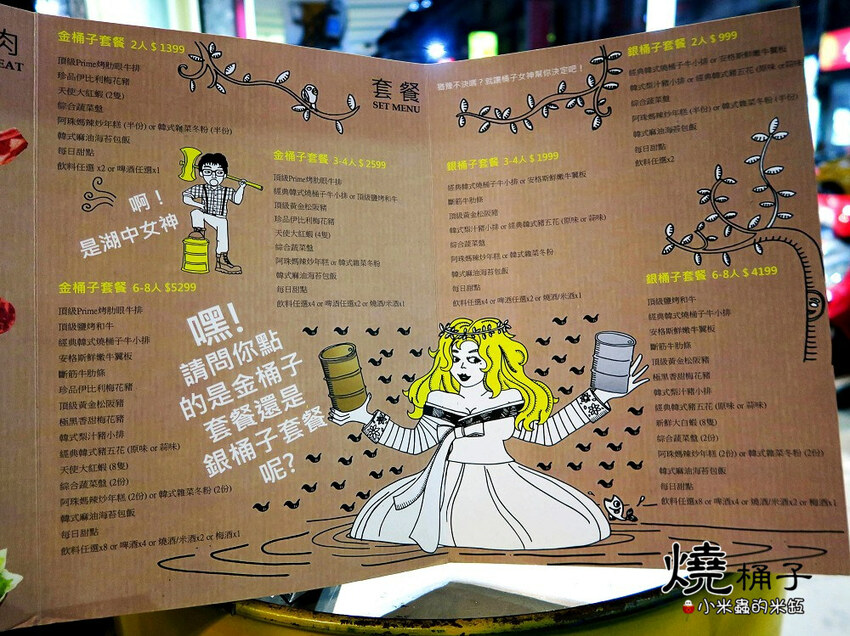 肉
EAT
金桶子套餐 2人 $ 1399
頂級Prime烤肋眼牛排
珍品伊比利梅花豬
天使大紅蝦 (2隻)
綜合蔬菜盤
阿珠媽辣炒年糕 (半份) or 韓式雜菜冬粉 (半份)
韓式麻油海苔包飯
每日甜點
飲料任選 x2 or 啤酒任選x1
啊！
是湖中女神
金桶子套餐 6-8人 $5299
頂級Prime烤肋眼牛排
頂級鹽烤和牛
經典韓式燒桶子牛小排
安格斯鮮嫩牛翼板
斷筋牛肋條
珍品伊比利梅花豬
頂級黃金松阪豬
極黑香甜梅花豬
韓式梨汁豬小排
經典韓式豬五花 (原味 or 蒜味)
天使大紅蝦 (8隻)
綜合蔬菜盤 (2份)
阿珠媽辣炒年糕 (2份) or 韓式雜菜冬粉 (2份)
韓式麻油海苔包飯
每日甜點
飲料任選x8 or 啤酒x4 or 燒酒/米酒x2 or 梅酒x1
套餐
SET MENU
金桶子套餐 3-4人 $ 2599
頂級Prime烤肋眼牛排
經典韓式燒桶子牛小排 or 頂級鹽烤和牛
頂級黃金松阪豬
珍品伊比利梅花豬
天使大紅蝦 (4隻)
綜合蔬菜盤
阿珠媽辣炒年糕 or 韓式雜菜冬粉
韓式麻油海苔包飯
每日甜點
飲料任選x4 or 啤酒任選x2 or 燒酒/米酒x1
嘿！
請問你點
的是金桶子
套餐還是
銀桶子套餐
呢?
猶豫不決嗎？就讓桶子女神幫你決定吧！
銀桶子套餐 3-4人 $ 1999
經典韓式燒桶子牛小排 or 安格斯鮮嫩牛翼板
斷筋牛肋條
頂級黃金松阪豬
韓式梨汁豬小排 or 經典韓式豬五花 (原味 or 蒜味)
綜合蔬菜盤
阿珠媽辣炒年糕 or 韓式雜菜冬粉
韓式麻油海苔包飯
每日甜點
飲料任選x4 or 啤酒任選x2 or 燒酒/米酒x1
銀桶子套餐 2人 $ 999
經典韓式燒桶子牛小排 or 安格斯鮮嫩牛翼板
韓式梨汁豬小排 or 經典韓式豬五花 (原味 or 蒜味)
綜合蔬菜盤
阿珠媽辣炒年糕 (半份) or 韓式雜菜冬粉 (半份)
韓式麻油海苔包飯
每日甜點
飲料任選x2
銀桶子套餐 6-8人 $ 4199
頂級鹽烤和牛
經典韓式燒桶子牛小排
安格斯鮮嫩牛翼板
斷筋牛肋條
頂級黃金松阪豬
極黑香甜梅花豬
韓式梨汁豬小排
經典韓式豬五花 (原味 or 蒜味)
新鮮大白蝦 (8隻)
綜合蔬菜盤 (2份)
阿珠媽辣炒年糕 (2份) or 韓式雜菜冬粉 (2份)
韓式麻油海苔包飯
每日甜點
飲料任選x8 or 啤酒x4 or 燒酒/米酒x2 or 梅酒x1
燒桶子
小米蟲的米缸